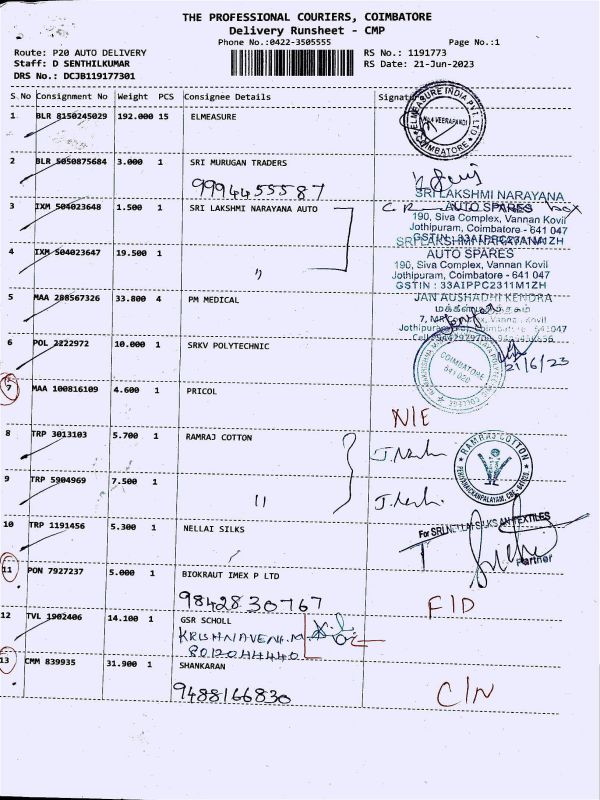 THE PROFESSIONAL COURIERS, COIMBATORE
Delivery Runsheet - CMP
Phone No.:0422-3505555 Page No.:1
Route: P20 AUTO DELIVERY RS No.: 1191773
Staff: D SENTHILKUMAR RS Date: 21-Jun-2023
DRS No.: DCJB119177301
S.No Consignment No Weight PCS Consignee Details
1 BLR 8150245029 192.000 15 ELMEASURE
ELMEASURE INDIA PVT. LTD
VEERAPANDI
COIMBATORE
2 BLR 5050875684 3.000 1 SRI MURUGAN TRADERS
9994455587
3 IXM 504023648 1.500 1 SRI LAKSHMI NARAYANA AUTO
SRI LAKSHMI NARAYANA
AUTO SPARES
190, Siva Complex, Vannan Kovil
Jothipuram, Coimbatore - 641 047
4 IXM 504023647 19.500 1 〃
SRI LAKSHMI NARAYANA
AUTO SPARES
190, Siva Complex, Vannan Kovil
Jothipuram, Coimbatore - 641 047
GSTIN : 33AIPPC2311M1ZH
5 MAA 288567326 33.800 4 PM MEDICAL
JAN AUSHADHI KENDRA
மக்கள்
6 POL 2222972 10.000 1 SRKV POLYTECHNIC
COIMBATORE
641 020
21/6/23
7 MAA 100816109 4.600 1 PRICOL
N/E
8 TRP 3013103 5.700 1 RAMRAJ COTTON
RAMRAJ COTTON
9 TRP 5904969 7.500 1 〃
10 TRP 1191456 5.300 1 NELLAI SILKS
For SRI NELLAI SILKS AN TEXTILES
Partner
11 PON 7927237 5.000 1 BIOKRAUT IMEX P LTD
9842830767 F/D
12 TVL 1902406 14.100 1 GSR SCHOLL
KRISHNAVENI.M
8012044440
13 CMM 839935 31.900 1 SHANKARAN
9488166830 C/N